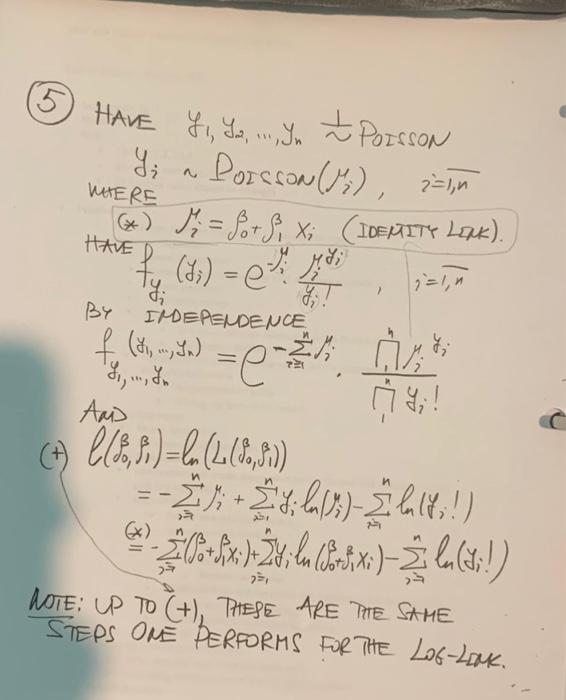 ⑤ HAVE y₁, y₂, ..., yₙ ⊥~ POISSON
yᵢ ~ POISSON(μᵢ), i=1,n̅
WHERE
(*) μᵢ = β₀ + β₁ xᵢ (IDENTITY LINK).
HAVE f_{yᵢ}(yᵢ) = e^{-μᵢ} · μᵢ^{yᵢ} / yᵢ! , i=1,n̅
BY INDEPENDENCE
f_{y₁,...,yₙ}(y₁,...,yₙ) = e^{-Σ_{i=1}^{n} μᵢ} · ∏₁ⁿ μᵢ^{yᵢ} / ∏₁ⁿ yᵢ!
AND
(+) l(β₀,β₁) = ln(L(β₀,β₁))
= -Σ_{i=1}^{n} μᵢ + Σ_{i=1}^{n} yᵢ ln(μᵢ) - Σ_{i=1}^{n} ln(yᵢ!)
(*)= -Σ_{i=1}^{n} (β₀+β₁xᵢ) + Σ_{i=1}^{n} yᵢ ln(β₀+β₁xᵢ) - Σ_{i=1}^{n} ln(yᵢ!)
NOTE: UP TO (+), THESE ARE THE SAME
STEPS ONE PERFORMS FOR THE LOG-LINK.